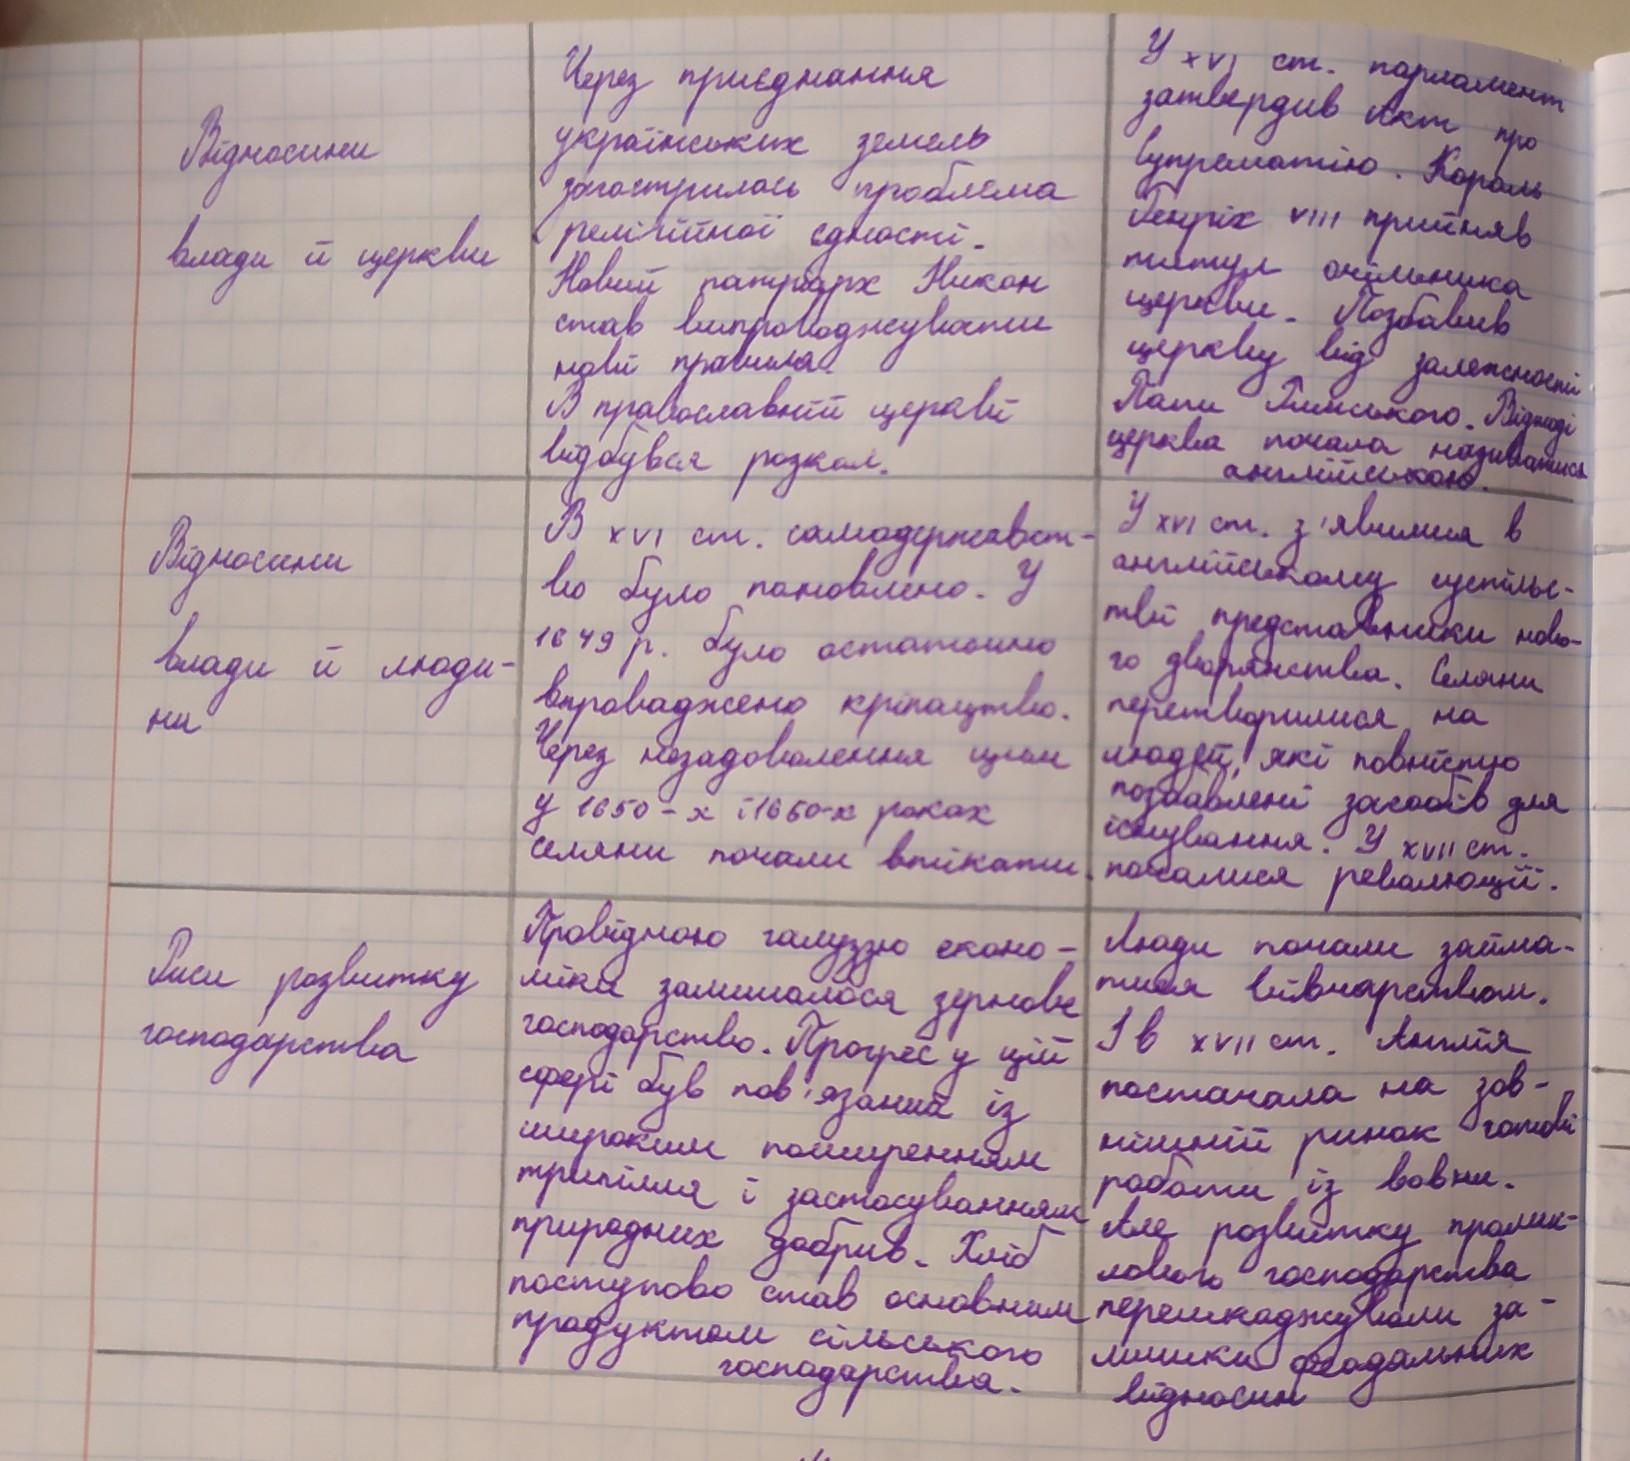 Відносини
влади й церкви
Через приєднання
українських земель
загострилась проблема
релігійної єдності.
Новий патріарх Никон
став випроводжувати
нові правила.
В православній церкві
відбувся розкол.
У XVI ст. парламент
затвердив Акт про
супрематію. Король
Генріх VIII прийняв
титул очільника
церкви. Позбавив
церкву від залежності
Папи Римського. Відтоді
церква почала називатися
англійською.
Відносини
влади й люди-
ни
В XVI ст. самодержавст-
во було поновлено. У
1649 р. було остаточно
впроваджено кріпацтво.
Через незадоволення цим
у 1650-х і 1660-х роках
селяни почали втікати.
У XVI ст. з'явилися в
англійському суспільс-
тві представники ново-
го дворянства. Селяни
перетворилися на
людей, які повністю
позбавлені засобів для
існування. У XVII ст.
почалися революції.
Риси розвитку
господарства
Провідною галуззю еконо-
міки залишалося зернове
господарство. Прогрес у цій
сфері був пов'язаний із
широким поширенням
трипілля і застосуванням
природних добрив. Хліб
поступово став основним
продуктом сільського
господарства.
Люди почали займа-
тися вівчарством.
І в XVII ст. Англія
постачала на зов-
нішній ринок готові
роботи із вовни.
Але розвитку промис-
лового господарства
перешкоджували за-
лишки феодальних
відносин